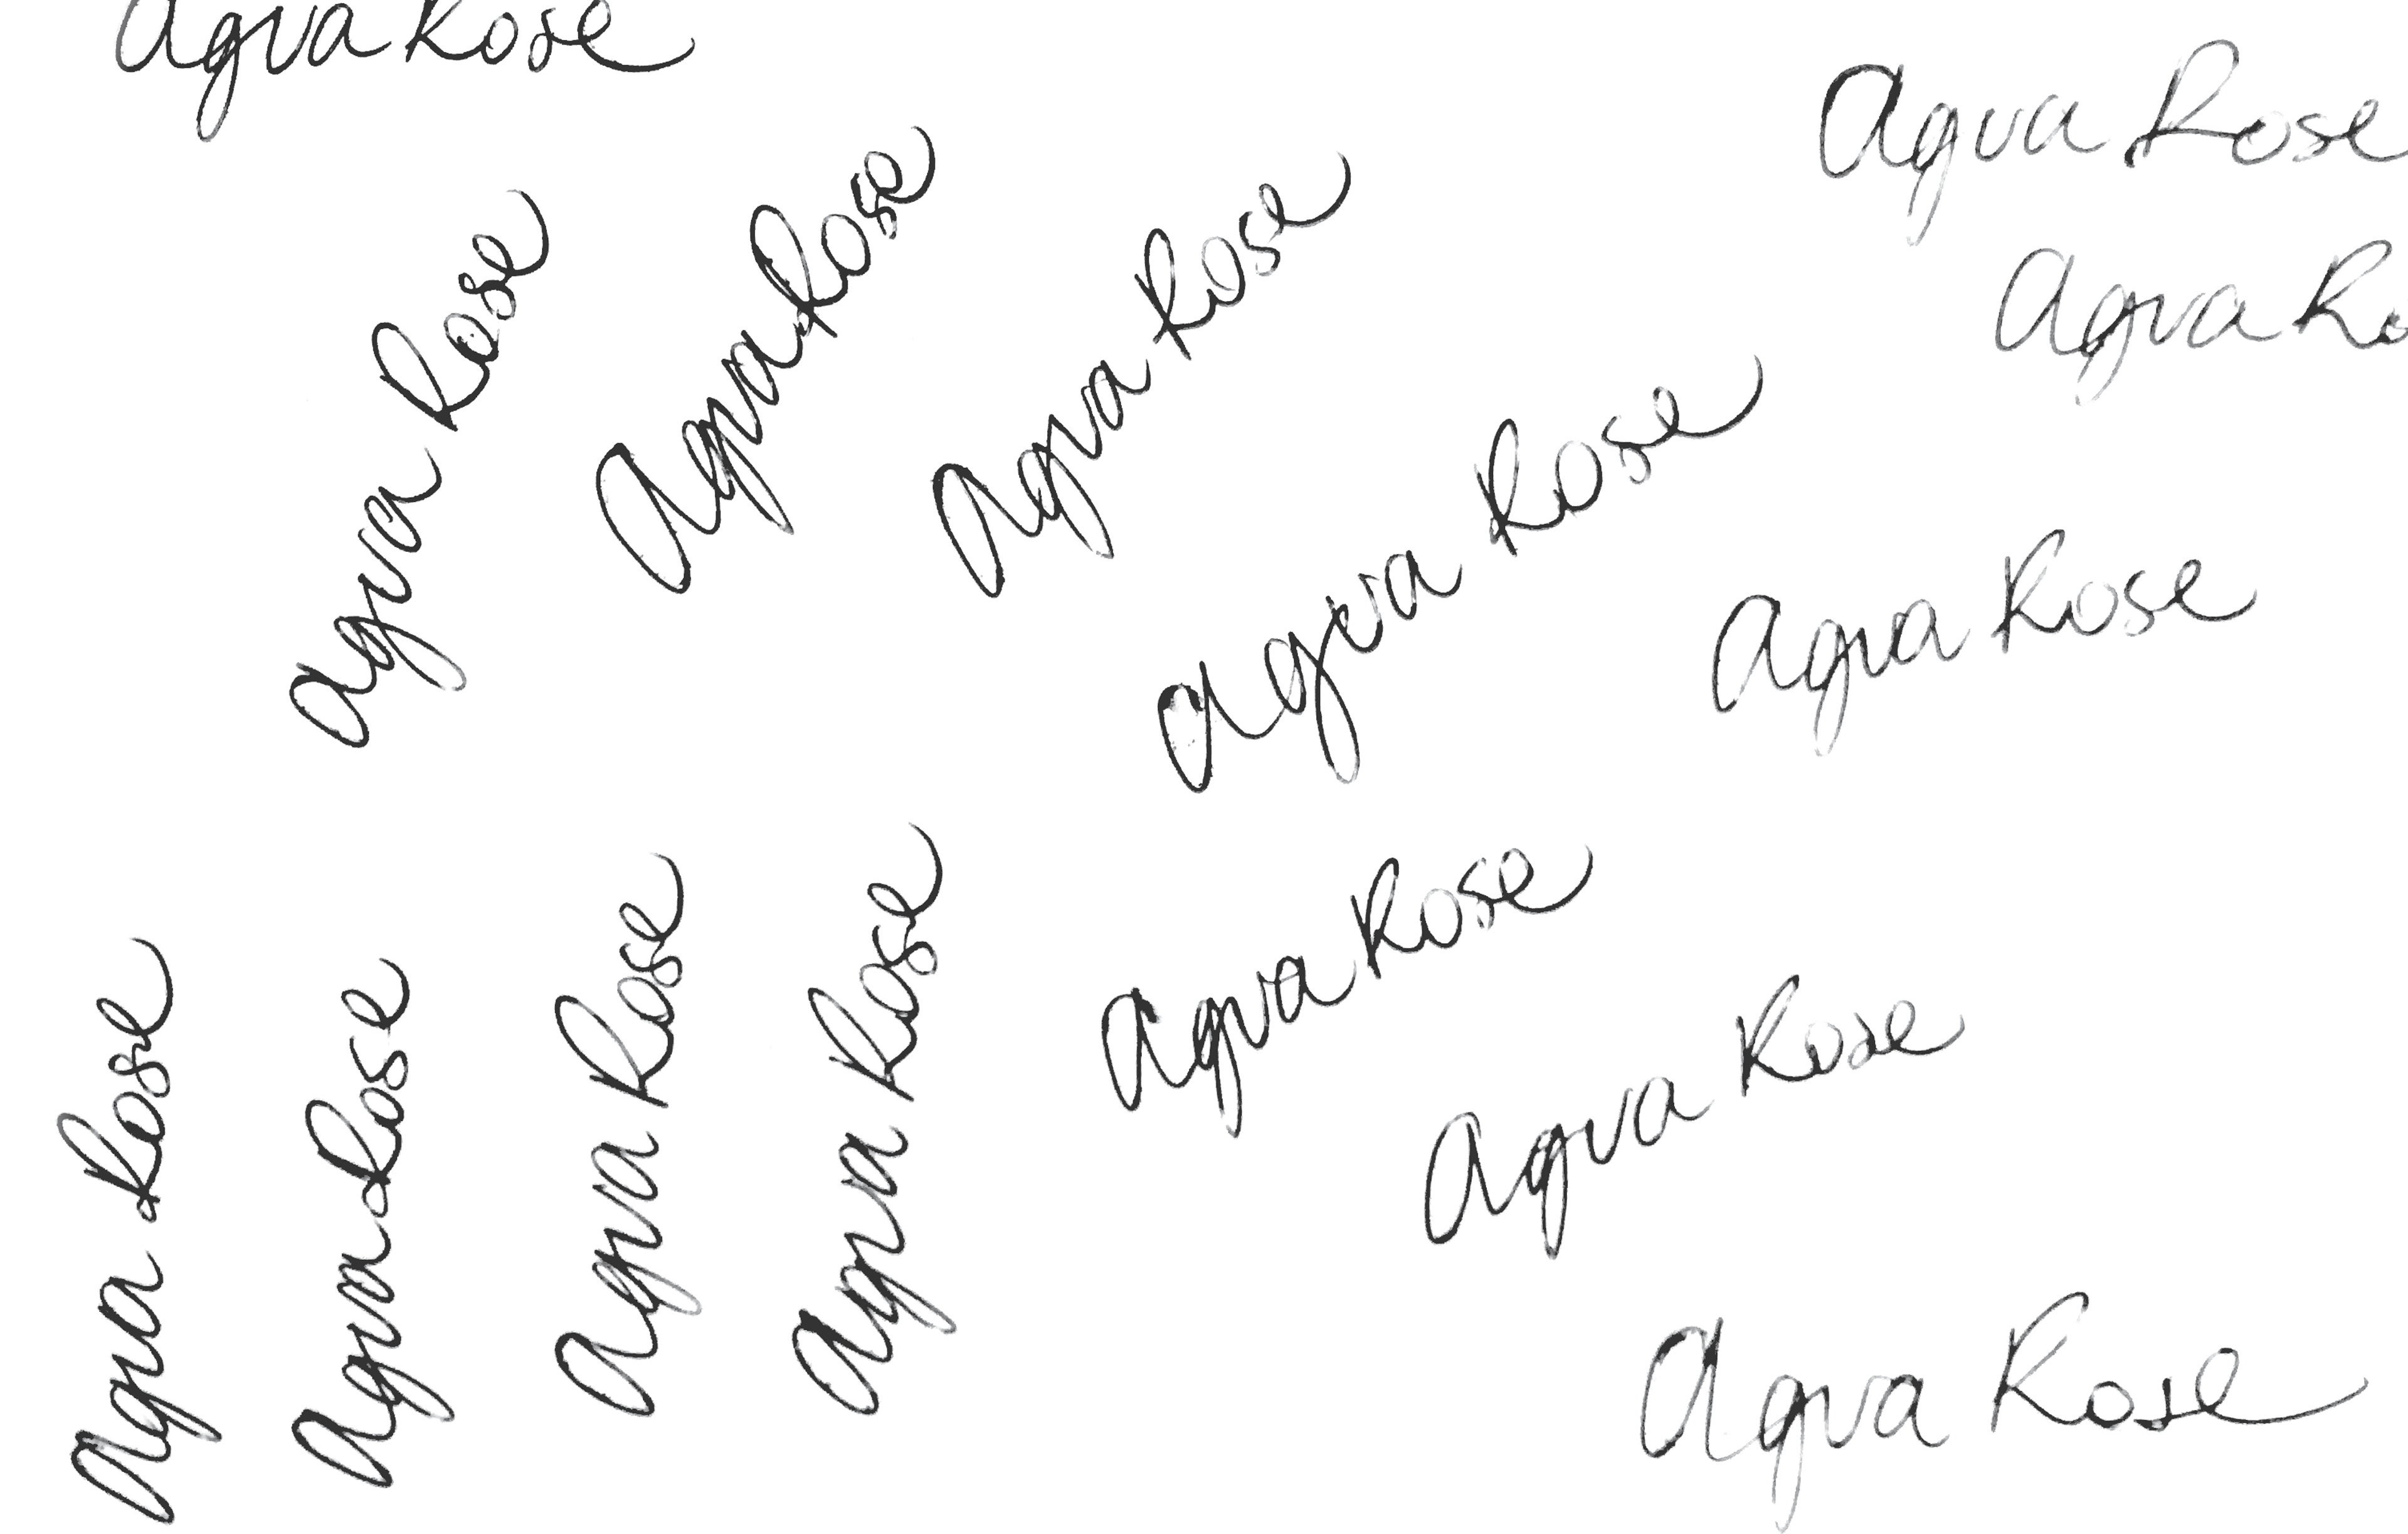 Agva Rose
Agva Rose
Agva Rose
Agva Rose
Agva Rose
Agva Ro
Agva Rose
Agva Rose
Agva Rose
Agva Rose
Agva Rose
Agva Rose
Agva Rose
Agva Rose
Agva Rose